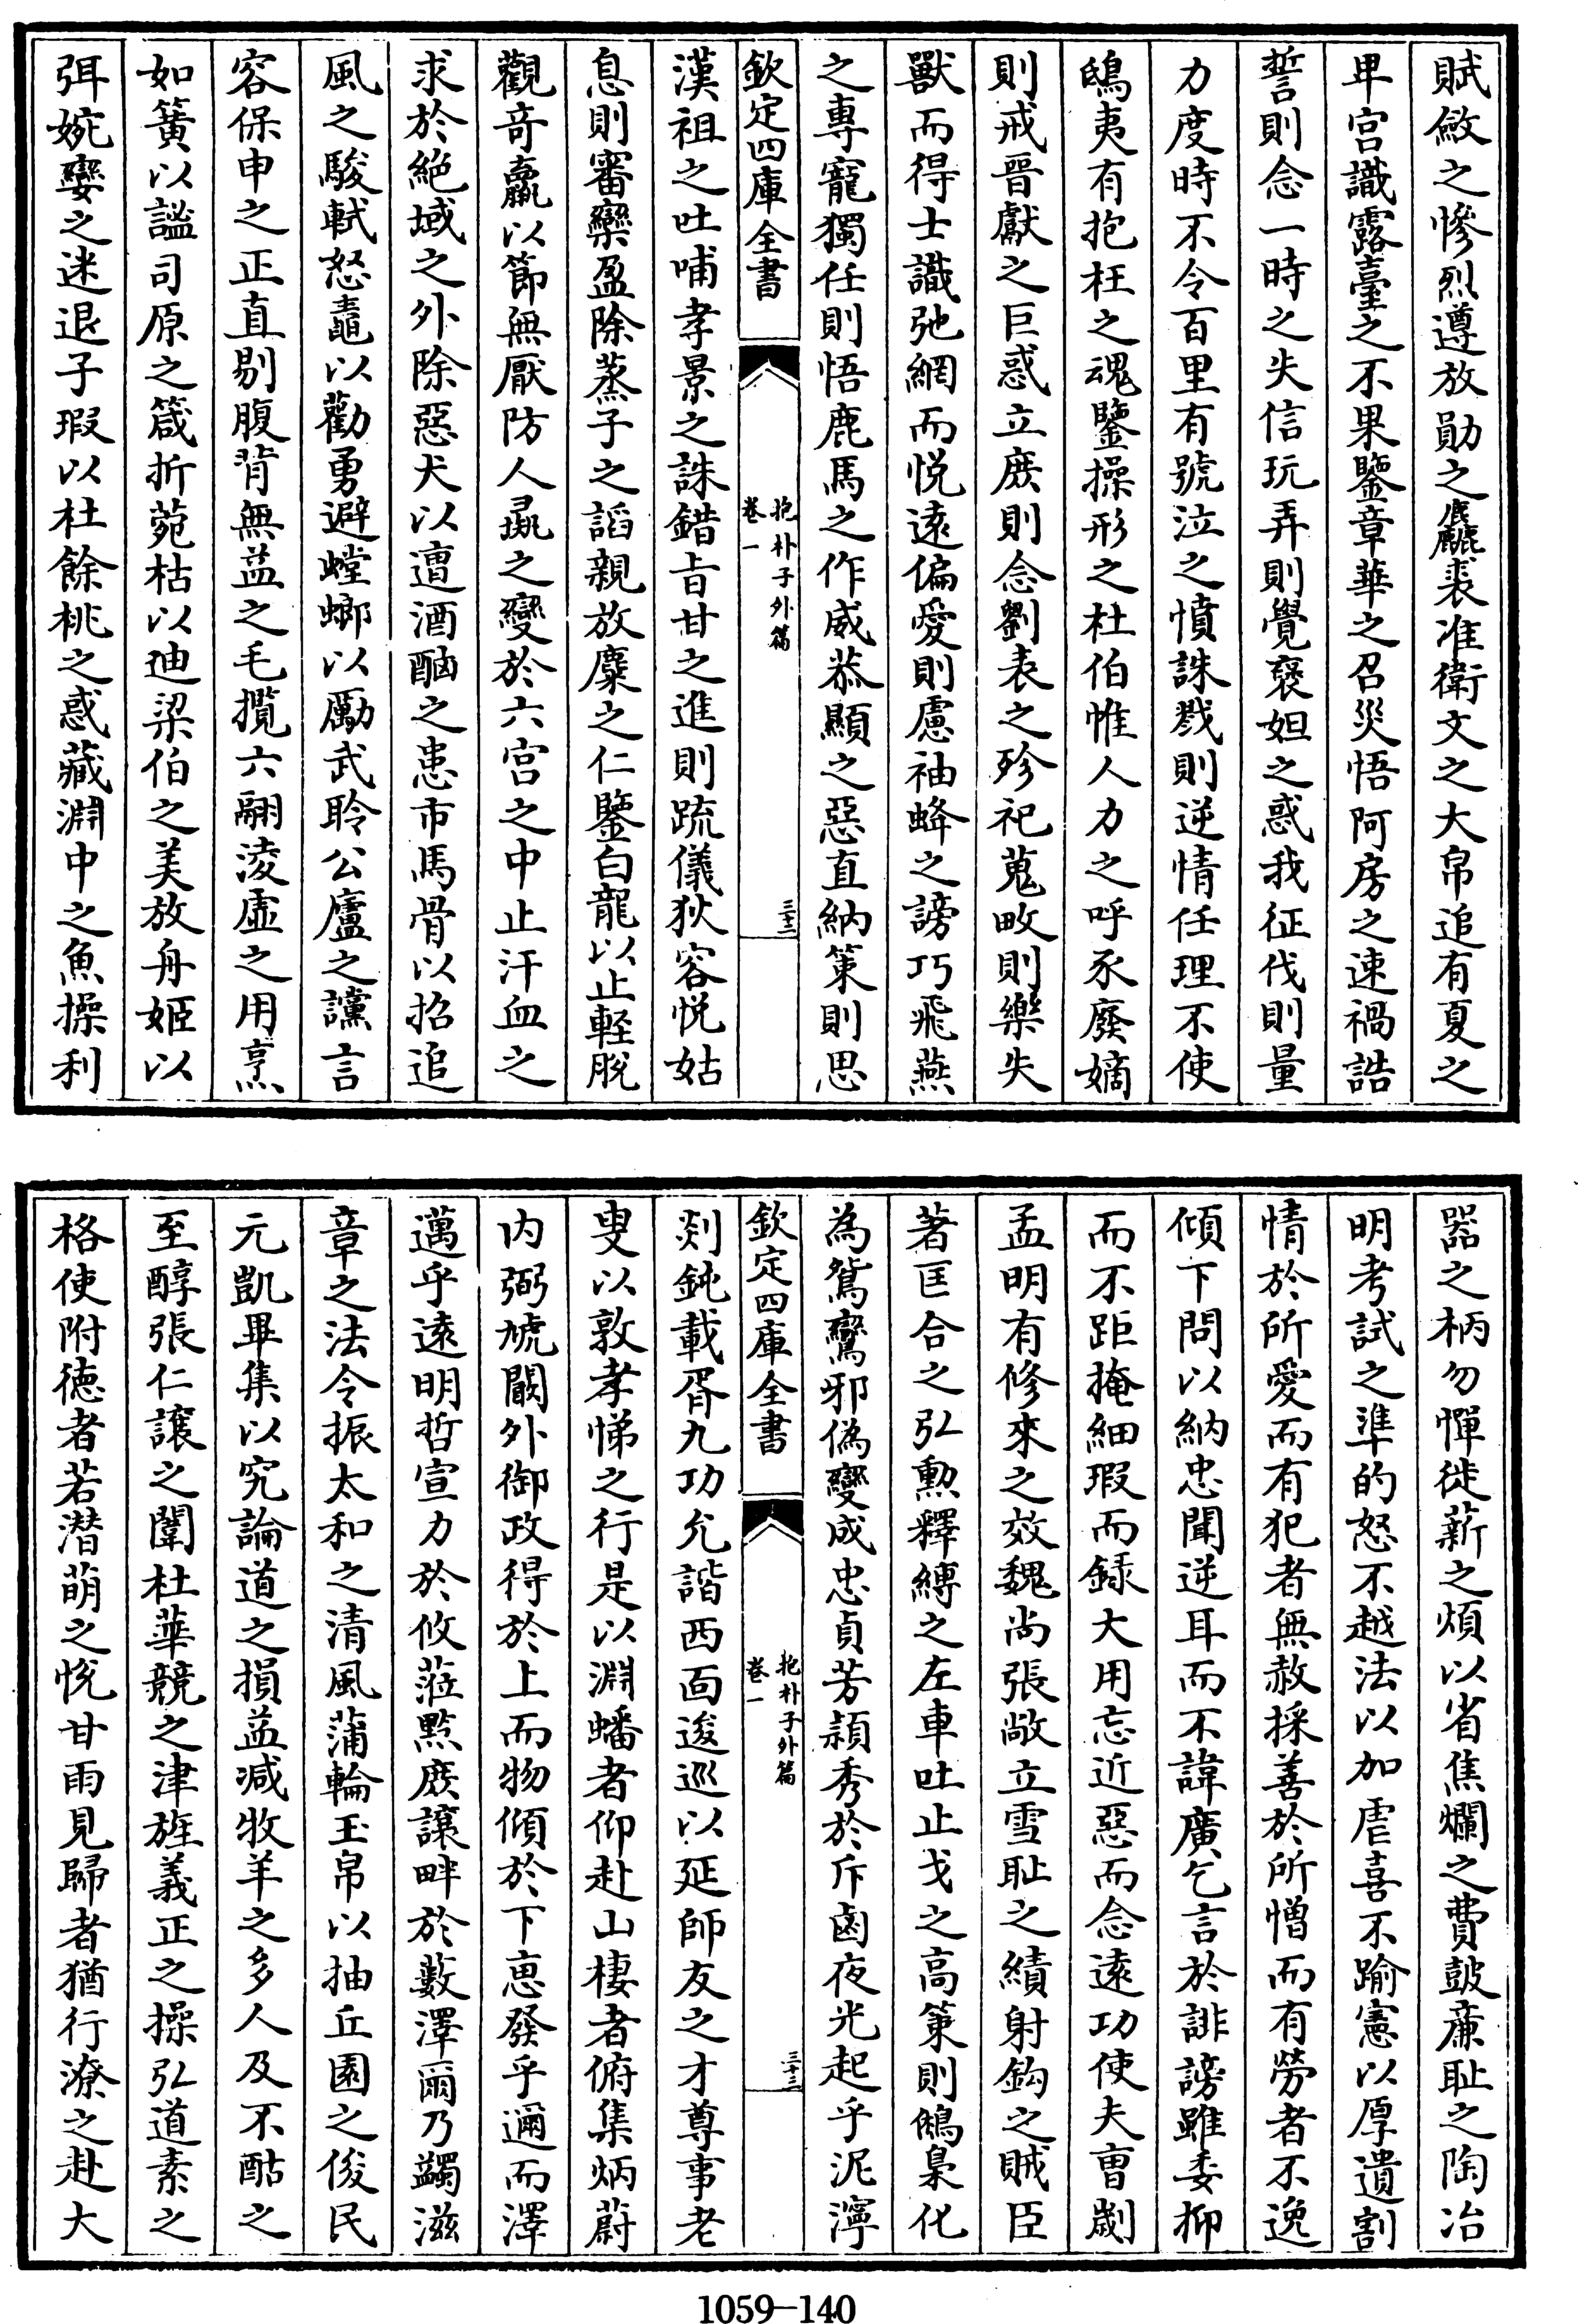 賦斂之慘烈遵放勛之麤裘准衛文之大帛追有夏之
卑宫識露臺之不果鑒章華之召災悟阿房之速禍誥
誓則念一時之失信玩弄則覺褒妲之惑我征伐則量
力度時不令百里有號泣之憤誅戮則逆情任理不使
鴟夷有抱枉之魂鑒操形之杜伯惟人力之呼豕廢嫡
則戒晋獻之巨惑立庶則念劉表之殄祀蒐畋則樂失
獸而得士識弛網而悦遠偏愛則慮袖蜂之謗巧飛燕
之專寵獨任則悟鹿馬之作威恭顯之惡直納策則思
欽定四庫全書
抱朴子外篇
卷一
三十二
漢祖之吐哺孝景之誅錯旨甘之進則疏儀狄容悦姑
息則審欒盈除蒸子之謟親放麋之仁鑒白龍以止輕脱
觀竒羸以節無厭防人彘之變於六宫之中止汗血之
求於絶域之外除惡犬以遭酒酗之患市馬骨以招追
風之駿軾怒鼃以勸勇避螳螂以厲武聆公廬之讜言
容保申之正直剔腹背無益之毛攬六翮淩虚之用烹
如簧以謐司原之箴折菀枯以迪梁伯之美放舟姬以
弭婉孌之迷退子瑕以杜餘桃之惑藏淵中之魚操利
器之柄勿憚徙薪之煩以省焦爛之費鼓亷耻之陶冶
明考試之準的怒不越法以加虐喜不踰憲以厚遺割
情於所愛而有犯者無赦採善於所憎而有勞者不逸
傾下問以納忠聞逆耳而不諱廣乞言於誹謗雖委抑
而不距掩細瑕而録大用忘近惡而念遠功使夫曺劌
孟明有修來之效魏尚張敞立雪耻之績射鈎之賊臣
著匡合之弘勳釋縳之左車吐止戈之高策則鵂梟化
為鴛鸞邪偽變成忠貞芳頴秀於斥鹵夜光起乎泥濘
欽定四庫全書
抱朴子外篇
卷一
三十三
剡鈍載胥九功允諧西面逡巡以延師友之才尊事老
叟以敦孝悌之行是以淵蟠者仰赴山棲者俯集炳蔚
内弼虓闞外御政得於上而物傾於下惪發乎邇而澤
邁乎遠明哲宣力於攸蒞㸃庶讓畔於藪澤爾乃蠲滋
章之法令振太和之清風蒲輪玉帛以抽丘園之俊民
元凱畢集以究論道之損益减牧羊之多人及不酤之
至醇張仁讓之闈杜華競之津旌義正之操弘道素之
格使附徳者若潜萌之悦甘雨見歸者猶行潦之赴大
1059—140